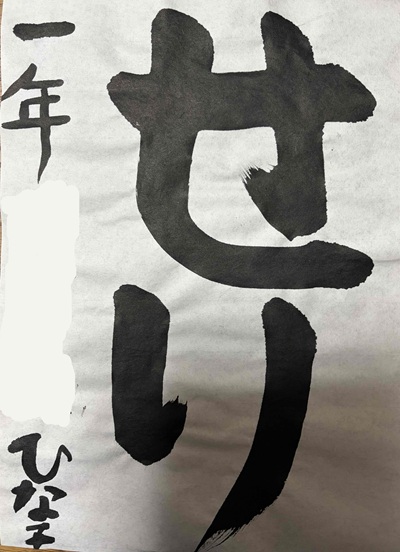 せり
一年 ひな